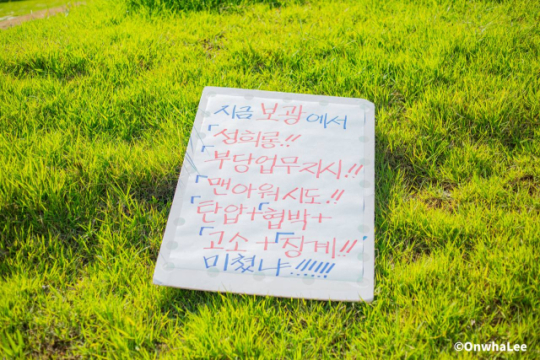 지금 보광에서
「성희롱.!!
「부당업무지시.!!
「맨아워시도.!!
「탄압+「협박+
「고소+「징계!!
미쳤냐..!!!!!!
©OnwhaLee